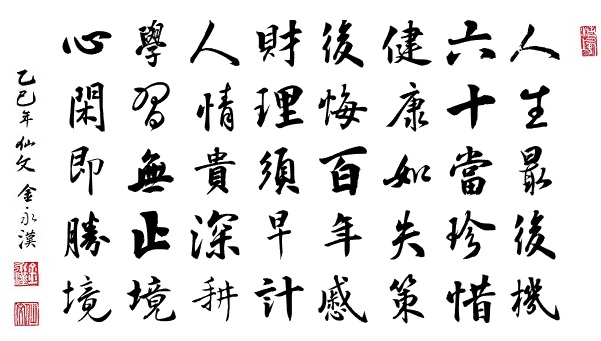 人生最後機
六十當珍惜
健康如失策
後悔百年慼
財理須早計
人情貴深耕
學習無止境
心閑即勝境
乙巳年仙文金永漢